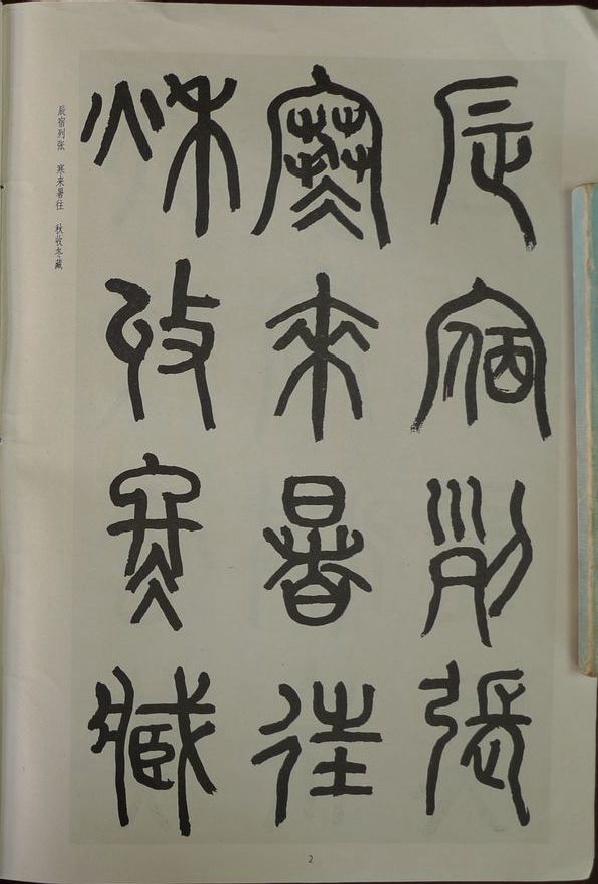 辰宿列张
寒来暑往
秋收冬藏
辰宿列张 寒来暑往 秋收冬藏
2